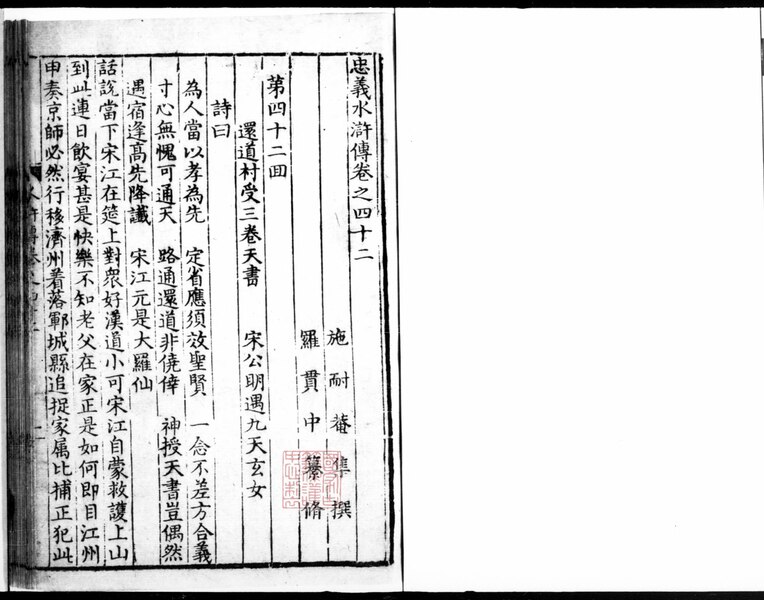 忠義水滸傳卷之四十二
施耐菴集撰
羅貫中纂脩
第四十二回
還道村受三卷天書 宋公明遇九天玄女
詩曰
為人當以孝為先 定省應須效聖賢 一念不差方合義
寸心無愧可通天 路通還道非僥倖 神授天書豈偶然
遇宿逢高先降讖 宋江元是大羅仙
話說當下宋江在筵上對衆好漢道小可宋江自蒙救護上山
到此連日飲宴甚是快樂不知老父在家正是如何即目江州
申奏京師必然行移濟州着落鄆城縣追捉家属比捕正犯此